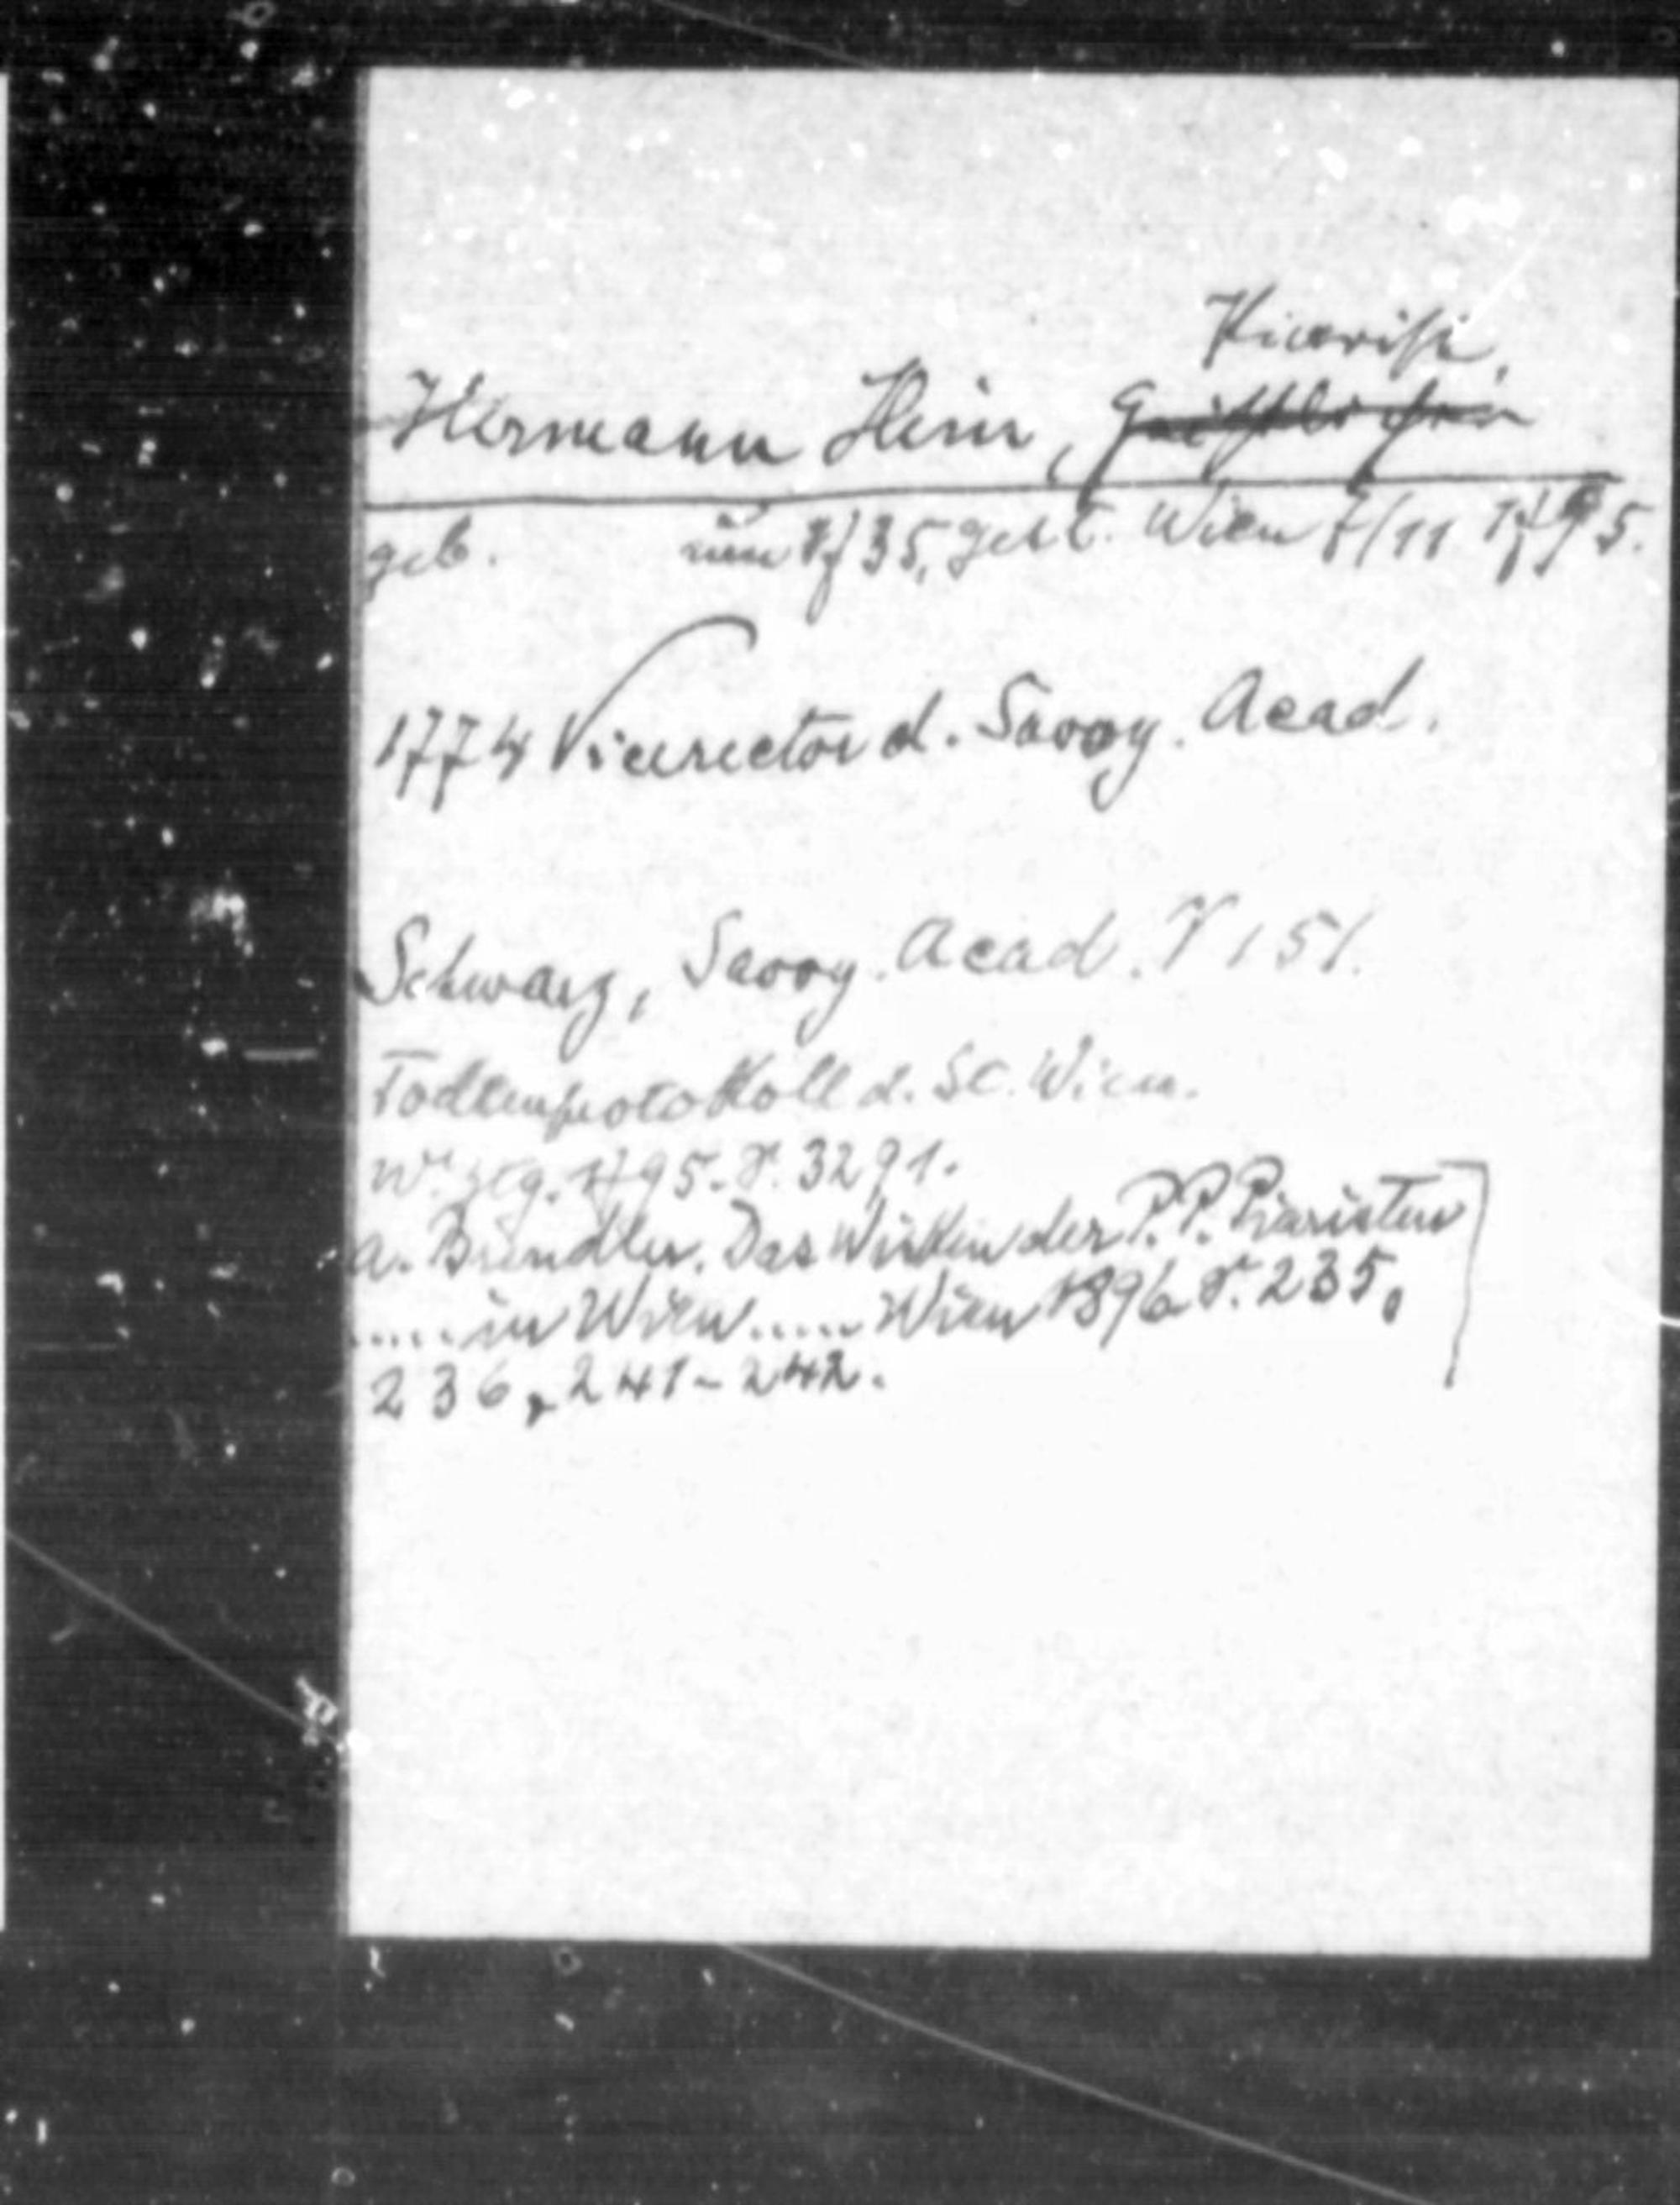 Piarist,
Hermann Heim, Geistlicher
geb. um 1735, gest. Wien 7/11 1795.
1774 Vicerector d. Savoy. Acad.
Schwarz, Savoy. Acad. S 151.
Todtenprotokoll d. St. Wien.
Wr. Ztg. 1795. S. 3291.
A. Brendler, Das Wirken der P.P. Piaristen
..... in Wien ..... Wien 1896 S. 235,
236, 241-242.